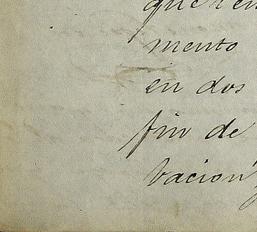 que
mento
en dos
fin de
vacion